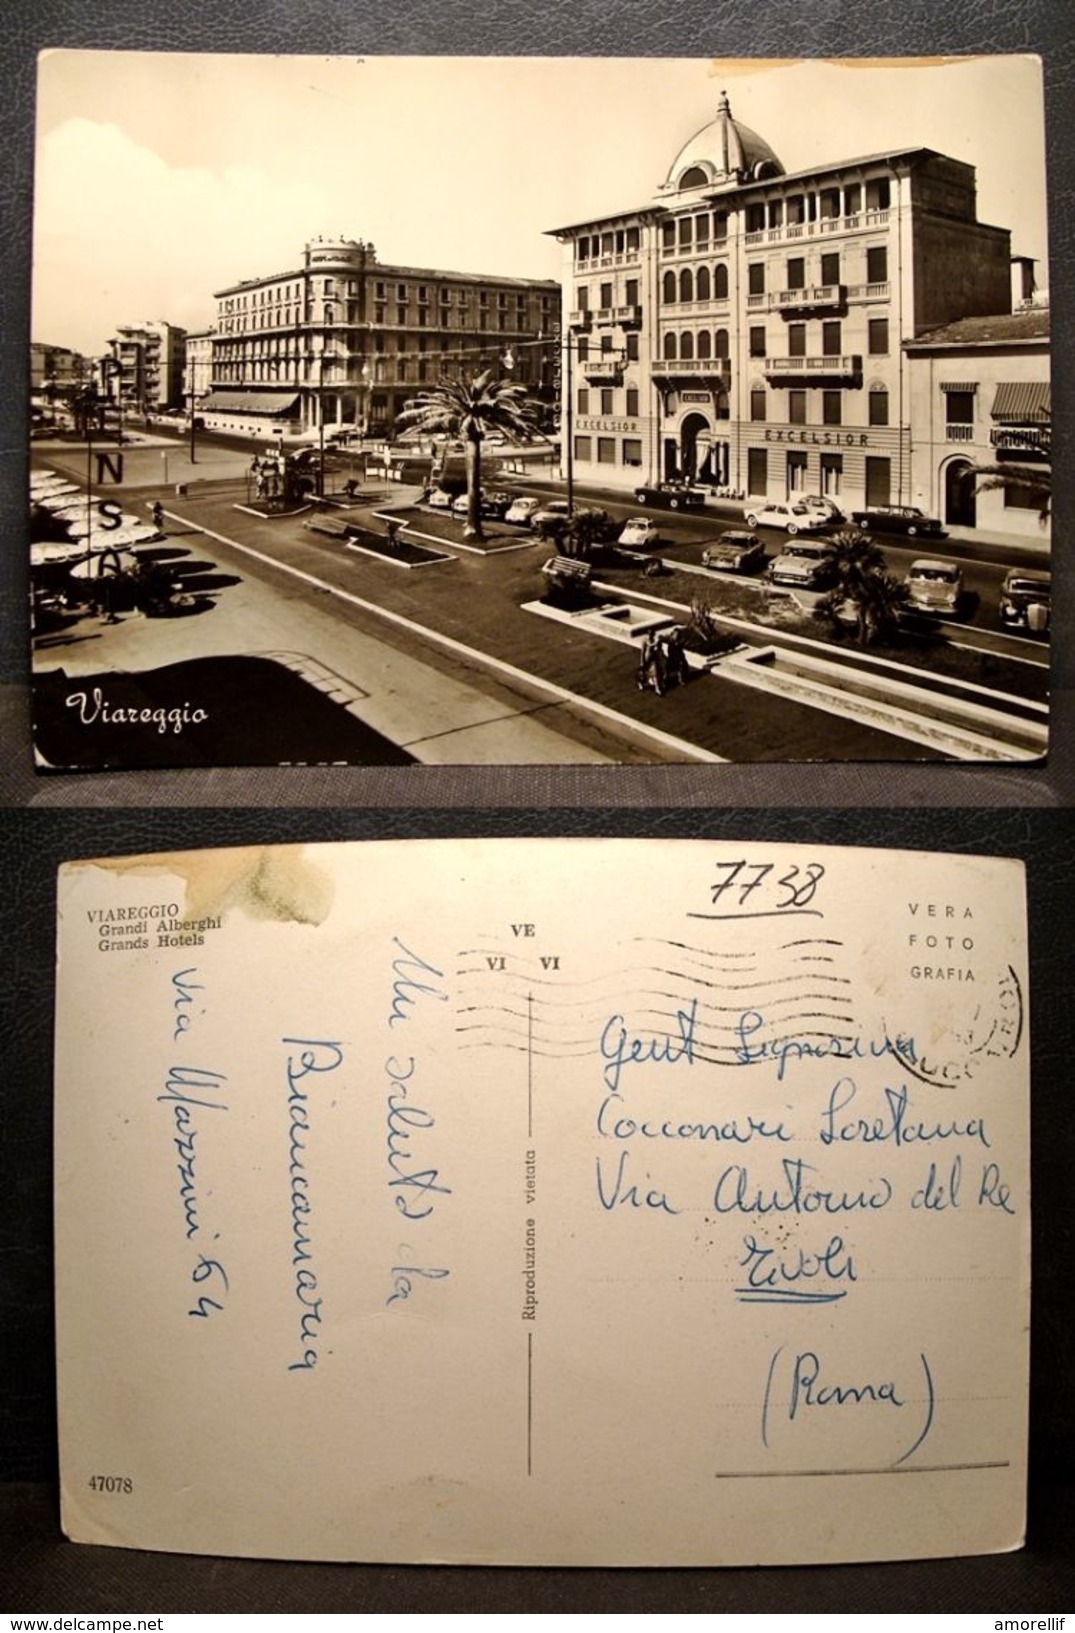 PENSA
EXCELSIOR
EXCELSIOR
EXCELSIOR
Viareggio
7738
VIAREGGIO
Grandi Alberghi
Grands Hotels
VE
VI VI
VERA
FOTO
GRAFIA
Un saluto da
Biancamaria
Via Mazzini 64
Riproduzione vietata
Gent Signorina
Cocconari Loretana
Via Antonio del Re
Tivoli
(Roma)
47078
https://www.delcampe.net
amorellif